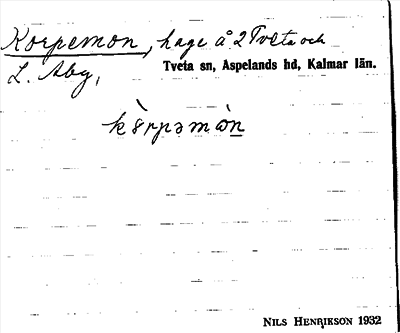 Korpemon, hage å 2 Tveta och
L. Aby,
Tveta sn, Aspelands hd, Kalmar län.
kòrpəmòn
NILS HENRIKSON 1932